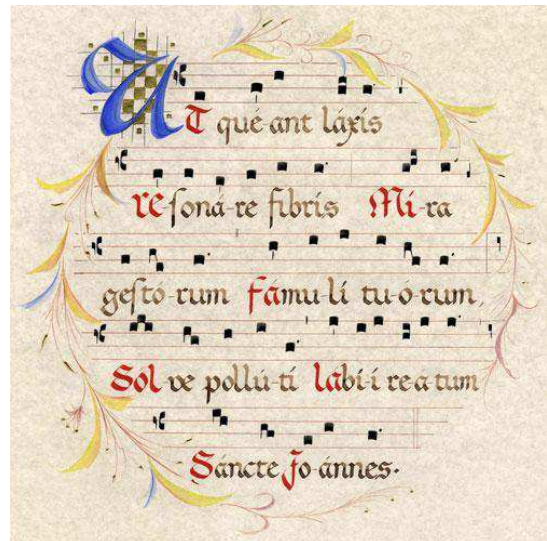 UT qué-ant láxis
re-ſoná-re fibris Mi-ra
geſtó-rum fámu-li tu-ó-rum,
Sol-ve pollú-ti lábi-i re-a-tum
Sáncte Jo-ánnes.